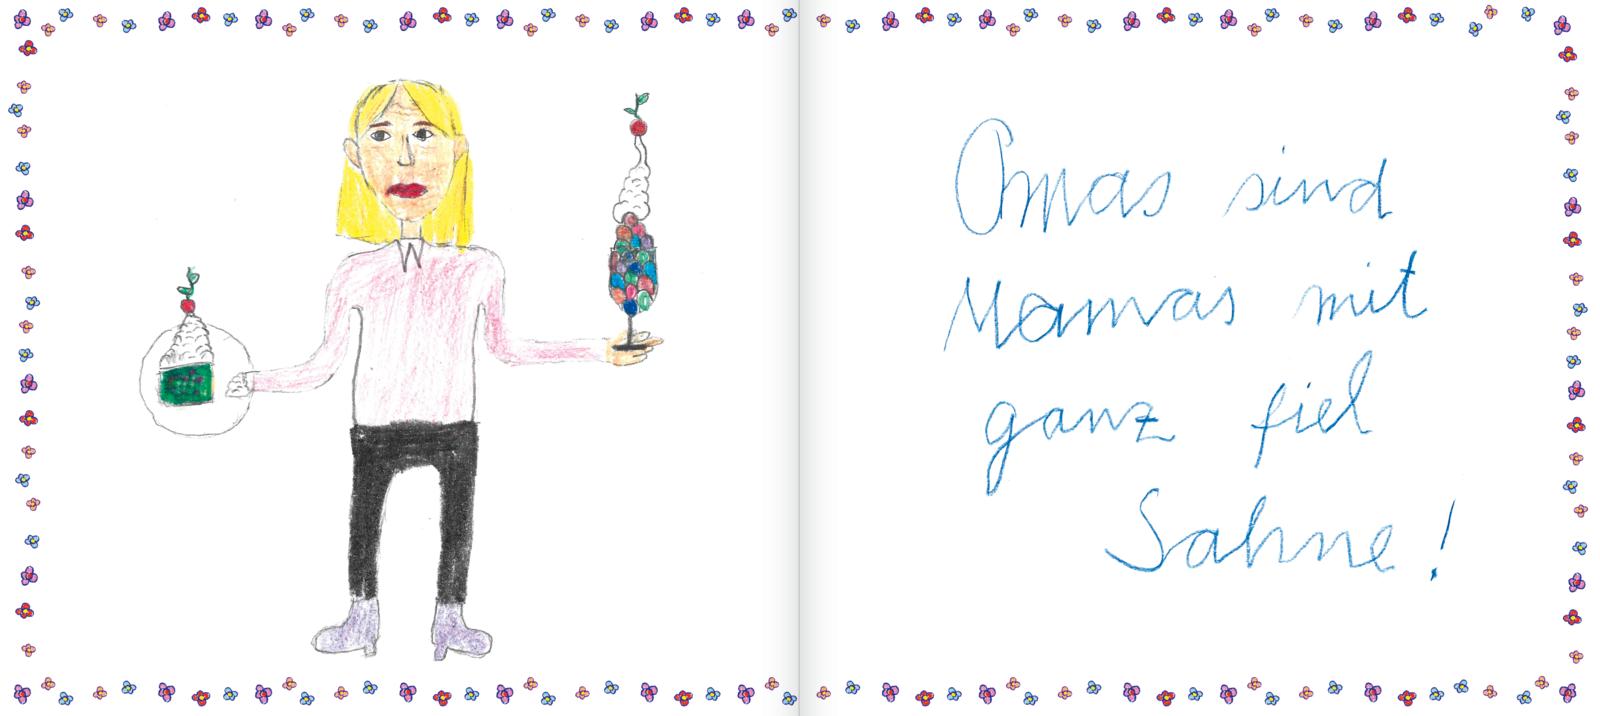 Omas sind
Mamas mit
ganz fiel
Sahne!